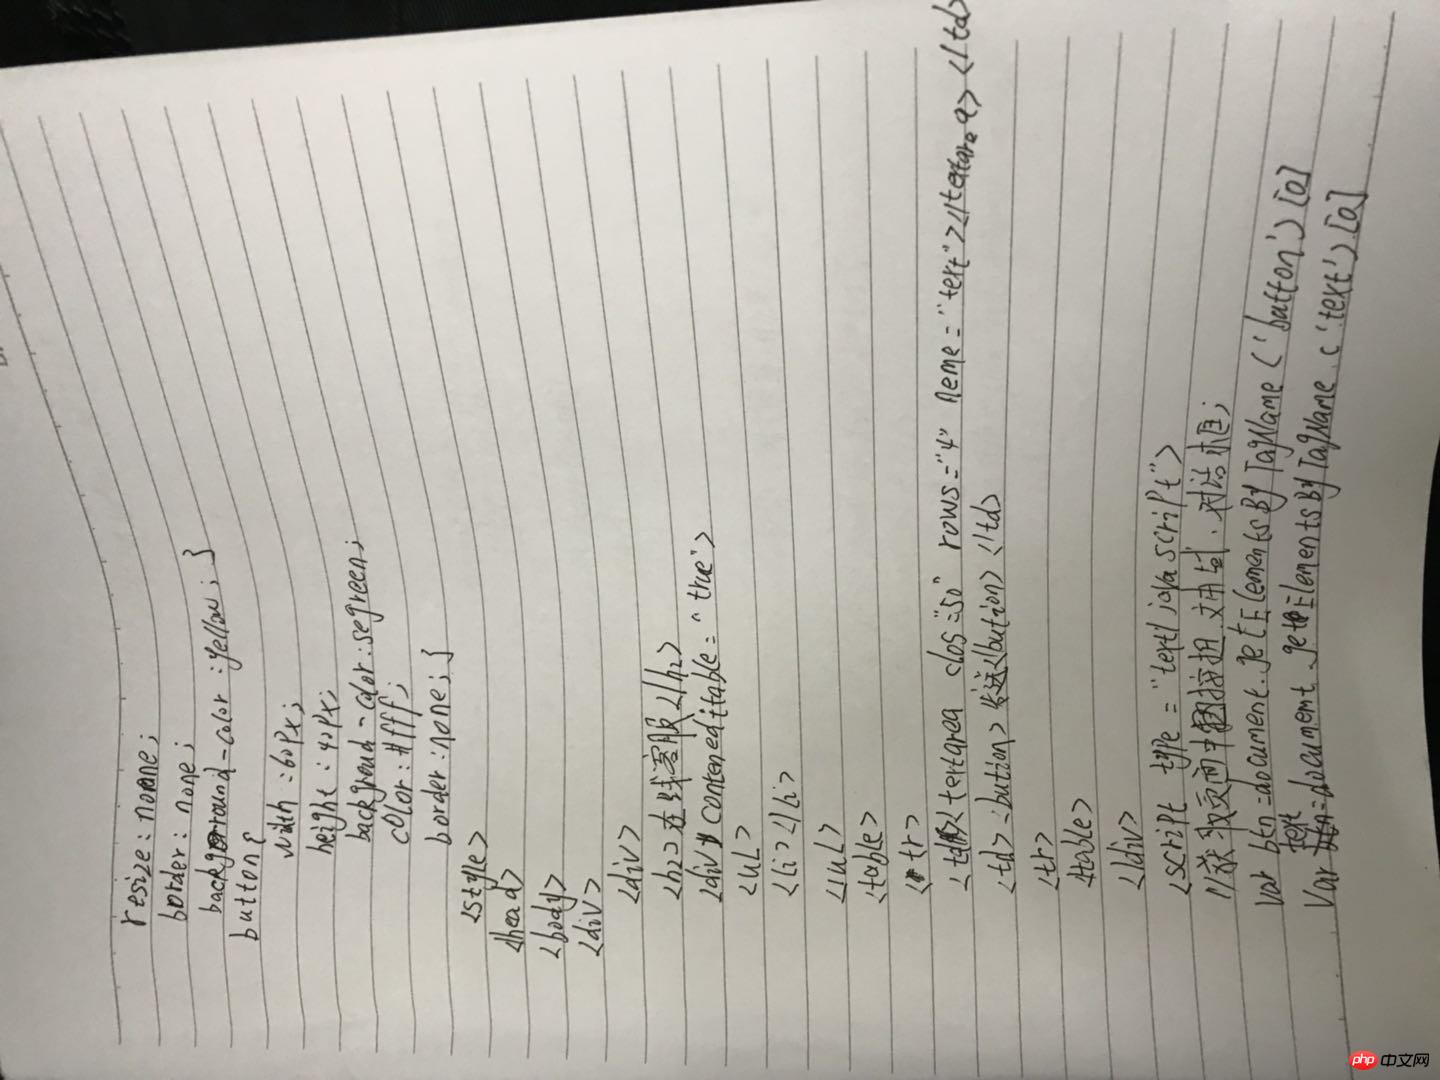 resize: none;
border: none;
background-color: yellow; }
button{
width: 60px;
heighe: 40px;
background-color: segreen;
color: #fff;
border: none; }
<style>
<head>
<body>
<div>
<div>
<h2>在线客服</h2>
<div conteneditable="true">
<ul>
<li></li>
</ul>
<table>
<tr>
<td><textarea clos="50" rows="4" neme="text"></textarea></td>
<td><button>发送</button></td>
<tr>
<table>
</div>
<script type="text/javascript">
//获取页面中的按扭.文本域.对话框;
var btn=document.getElementsByTagName('button')[0]
Var text=document.getElementsByTagName('text')[0]
php 中文网